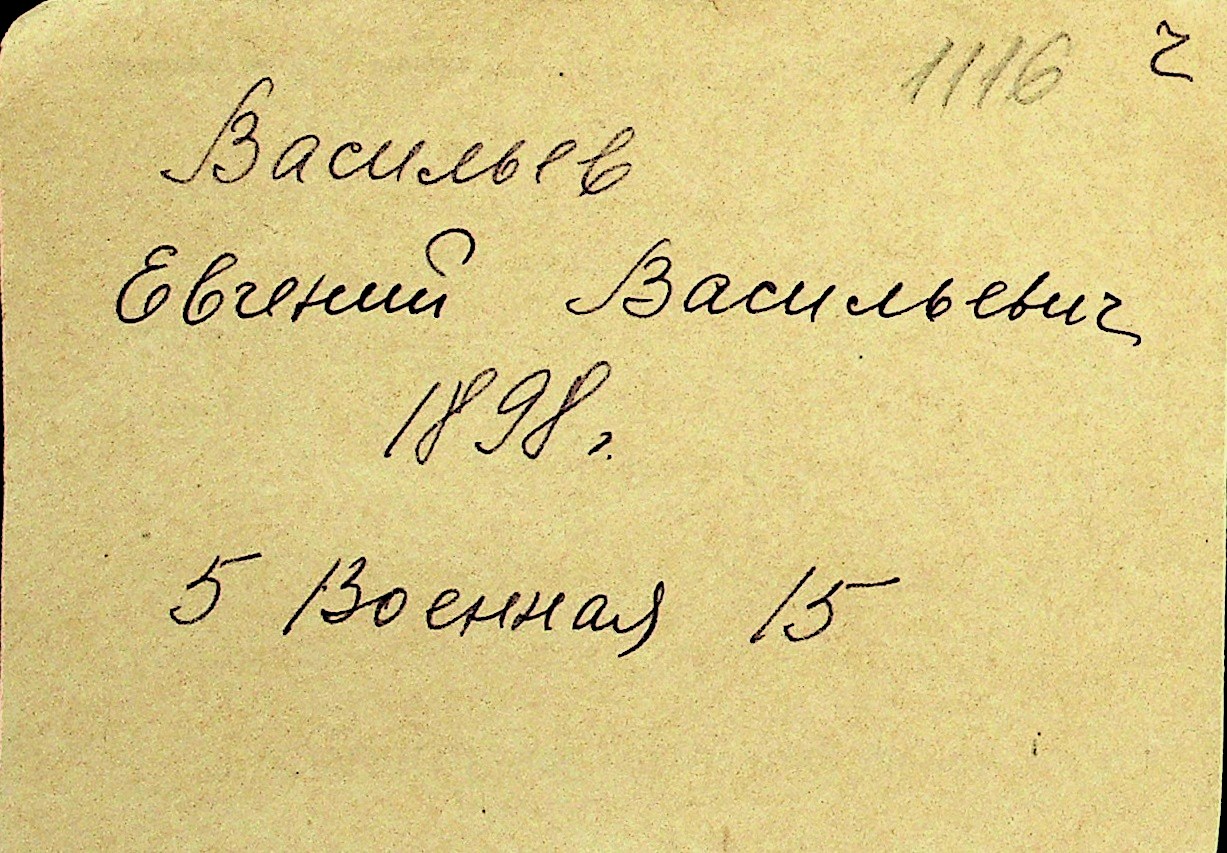 1116 ч
Васильев
Евгений Васильевич
1898 г.
5 Военная 15